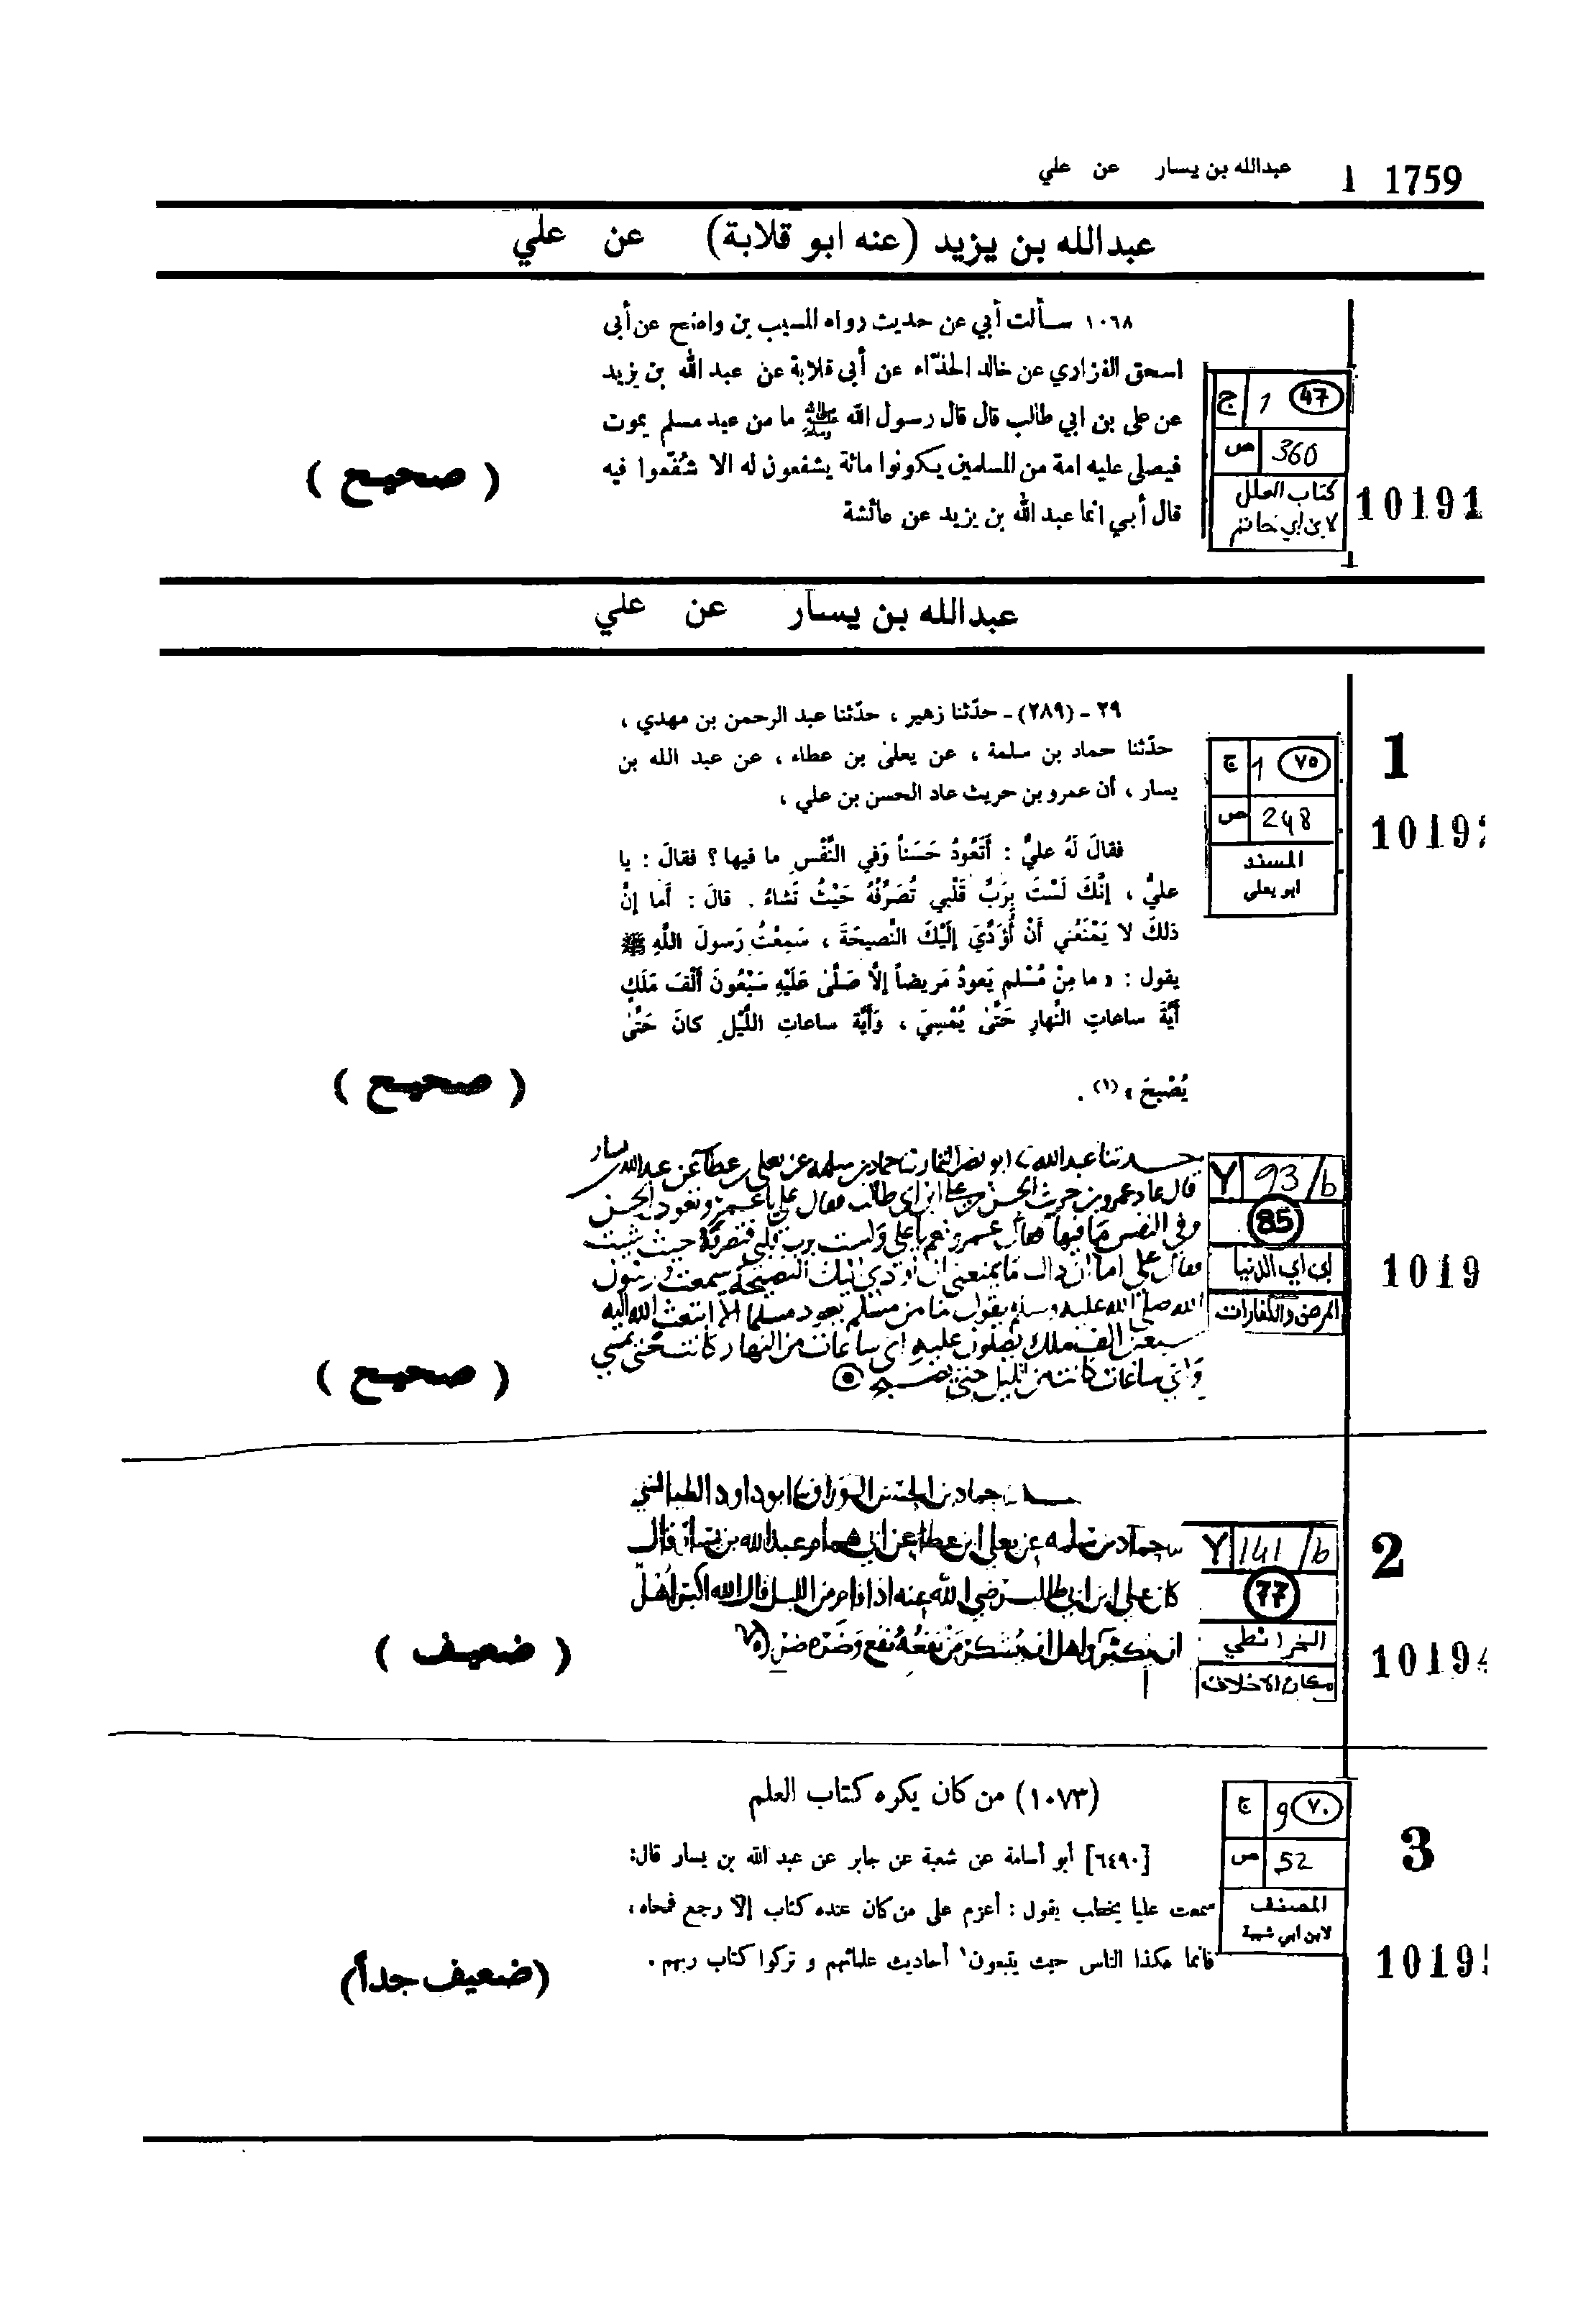 1759 أ عبدالله بن يسار عن علي
عبدالله بن يزيد (عنه ابو قلابة) عن علي
١٠٦٨ سألت أبي عن حديث رواه المسيب بن واضح عن أبى
اسحق الفزاري عن خالد الحذّاء عن أبى قلابة عن عبد الله بن يزيد
عن على بن ابي طالب قال قال رسول الله ﷺ ما من عبد مسلم يموت
فيصلى عليه امة من المسلمين يكونوا مائة يشفعون له الا شُفّعوا فيه
قال أبي انما عبد الله بن يزيد عن عائشة
(صحيح)
47 1 ج
360 ص
كتاب العلل
لابن ابي حاتم
10191
عبدالله بن يسار عن علي
٢٩ - (٢٨٩) - حدّثنا زهير ، حدّثنا عبد الرحمن بن مهدي ،
حدّثنا حماد بن سلمة ، عن يعلى بن عطاء ، عن عبد الله بن
يسار ، أن عمرو بن حريث عاد الحسن بن علي ،
فقالَ لَهُ عليٌّ : أَتَعُودُ حَسَناً وَفي النَّفْسِ ما فيها؟ فقالَ : يا
عليُّ ، إنَّكَ لَسْتَ بِرَبِّ قَلْبي تُصَرِّفُهُ حَيْثُ تَشاءُ . قالَ : أَما إنَّ
ذلكَ لا يَمْنَعُني أَنْ أُؤَدِّيَ إلَيْكَ النَّصيحَةَ ، سَمِعْتُ رَسولَ اللَّهِ ﷺ
يقول : « ما مِنْ مُسْلم يَعودُ مَريضاً إلَّا صَلَّى عَلَيْهِ سَبْعُونَ أَلْفَ مَلَكٍ
أَيَّةَ ساعاتِ النَّهارِ حَتَّى يُمْسِيَ ، وَأَيَّة ساعاتِ اللَّيْلِ كانَ حَتَّى
يُصْبحَ » (١) .
(صحيح)
٧٥ 1 ج
248 ص
المسند
ابو يعلى
1
1019
حدثنا عبدالله نا ابو نصر التمار نا حماد بن سلمه عن يعلى بن عطاء عن عبدالله بن يسار
قال عاد عمرو بن حريث الحسن بن على ابن ابي طالب فقال علي يا عمرو تعود الحسن
وفي النفس ما فيها فقال عمرو نعم يا علي ولست برب قلبي فتصرفه حيث شئت
فقال علي اما ان ذاك ما يمنعني ان اؤدي اليك النصيحة سمعت رسول
الله صلى الله عليه وسلم يقول ما من مسلم يعود مسلما الا ابتعث الله اليه
سبعين الف ملك يصلون عليه اي ساعات من النهار كانت حتى يمسي
واي ساعات كانت من الليل حتى يصبح
(صحيح)
Y 93/b
85
ابن ابي الدنيا
المرض والكفارات
1019
حماد بن الحسن الوراق نا ابو داود الطيالسي
حماد بن سلمه عن يعلى ابن عطاء عن ابي همام عبدالله بن يسار قال
كان علي ابن ابي طالب رضي الله عنه اذا قام من الليل قال الله اكبر اهل
ان يكبر واهل ان يشكر من نفعه نفع وضره ضر
(ضعيف)
Y 141/b
77
الخرائطي
مكارم الاخلاق
2
1019
(١٠٧٣) من كان يكره كتاب العلم
[٦٤٩٠] أبو أسامة عن شعبة عن جابر عن عبد الله بن يسار قال:
سمعت عليا يخطب يقول : أعزم على من كان عنده كتاب إلا رجع فمحاه ،
فانما هكذا الناس حيث يتبعون ١ أحاديث علمائهم و تركوا كتاب ربهم .
(ضعيف جداً)
٧٠ 9 ج
52 ص
المصنف
لابن ابي شيبة
3
1019